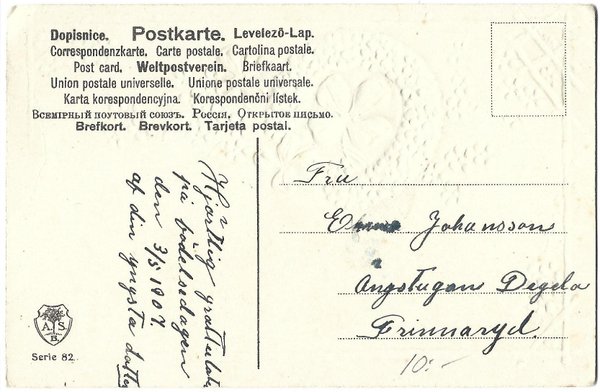 Dopisnice. Postkarte. Levelező-Lap.
Correspondenzkarte. Carte postale. Cartolina postale.
Post card. Weltpostverein. Briefkaart.
Union postale universelle. Unione postale universale.
Karta korespondencyjna. Korespondenční lístek.
Всемірный почтовый союзъ. Россія. Открытое письмо.
Brefkort. Brevkort. Tarjeta postal.
Hjärtlig gratulation
på födelsedagen
den 3/5 1907.
af din yngsta dotter
Fru
Johansson
Ångstugan Degla
Frinnaryd.
10:-
A S
B.
Serie 82.